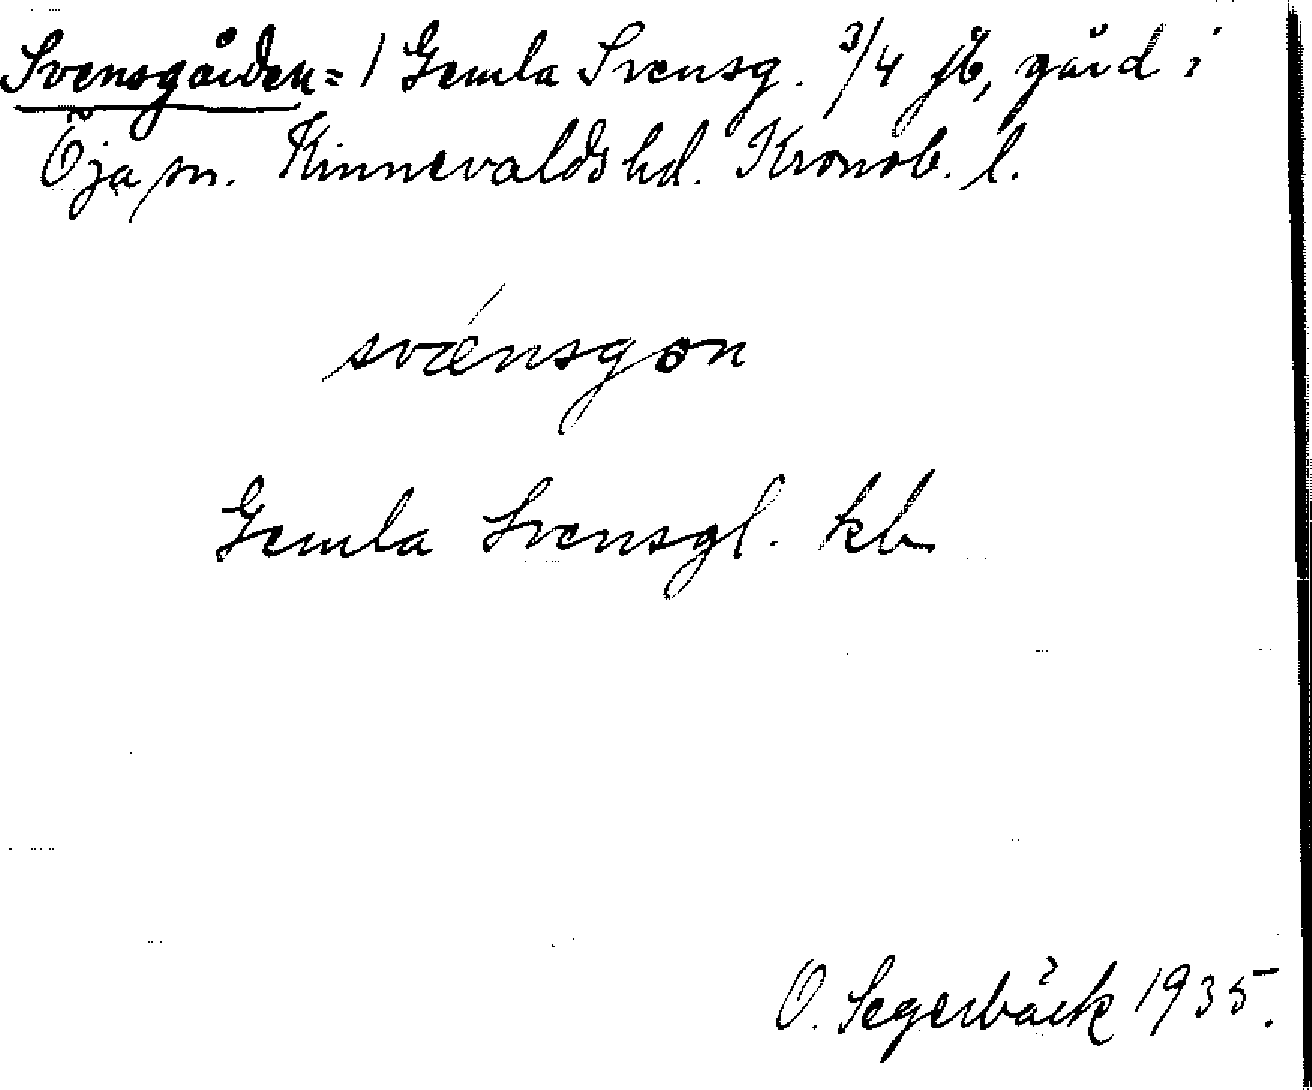 Svensgården = / Gemla Svensg. 3/4 jb, gård i
Öja sn. Kinnevalds hd. Kronob. l.
svǽnsgon
Gemla Svensgl. kb
O. Segerbäck 1935.